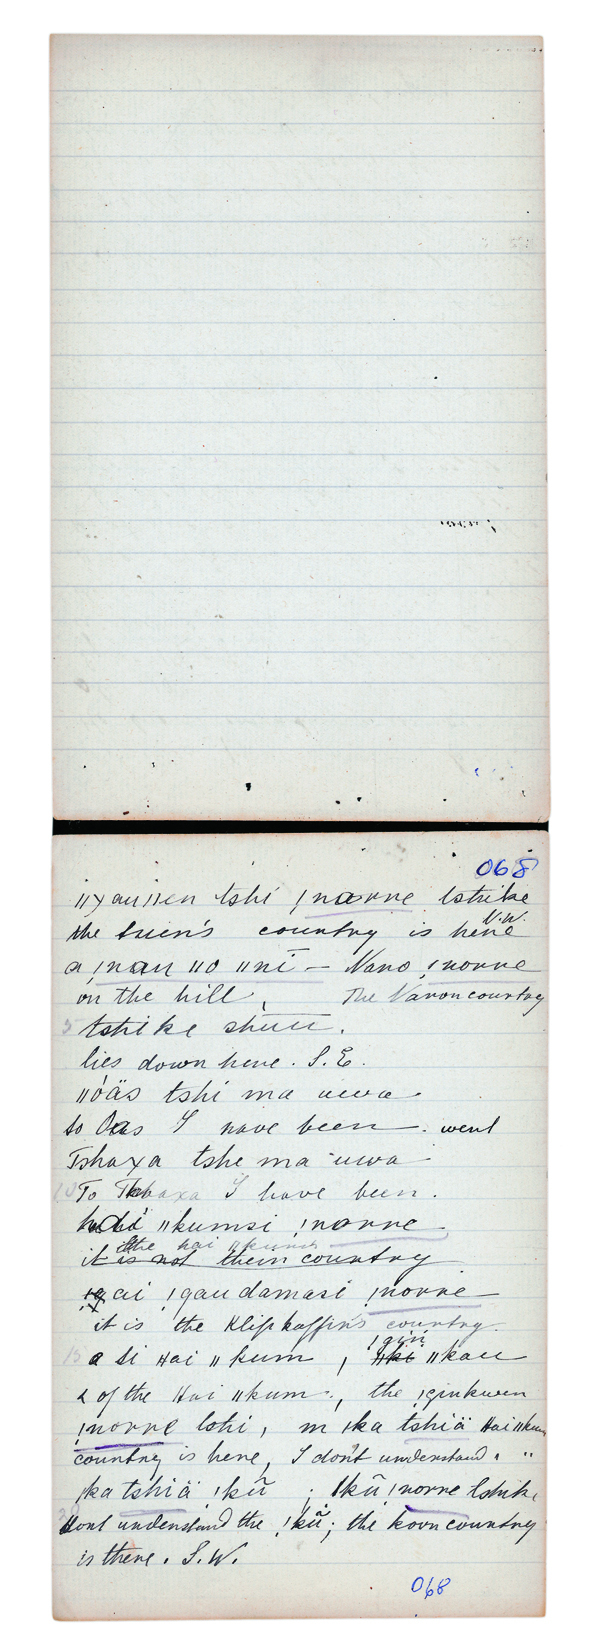 068
ǁχauǁen tshi ǃnorre tshike
the buen's country is here N.W.
a ǃnau ǁo ǁnī – Naro ǃnorre
on the hill, The Naron country
5 tshike shuu.
lies down here. S.E.
ǁóäs tshi ma uwa
to Oas I have been. went
Tshaχa tshe ma uwa
10 To Tshaxa I have been.
ǁkumsi ǃnorre
the hai ǁkums
it is not them country
ǃgai ǃgaudamasi ǃnorre
it is the Klipkaffir's country.
ǃgiŋ
15 a si Hai ǁkum, ǁki ǁkau
& of the Hai ǁkum, the ǃginkwen
ǃnorre tshi, m ka tshiä Hai ǁkum
country is here, I don't understand " "
ka tshiä ǃkũ; ǃkũ ǃnorre tshike
dont understand the ǃkũ; the koon country
is there. S.W.
068